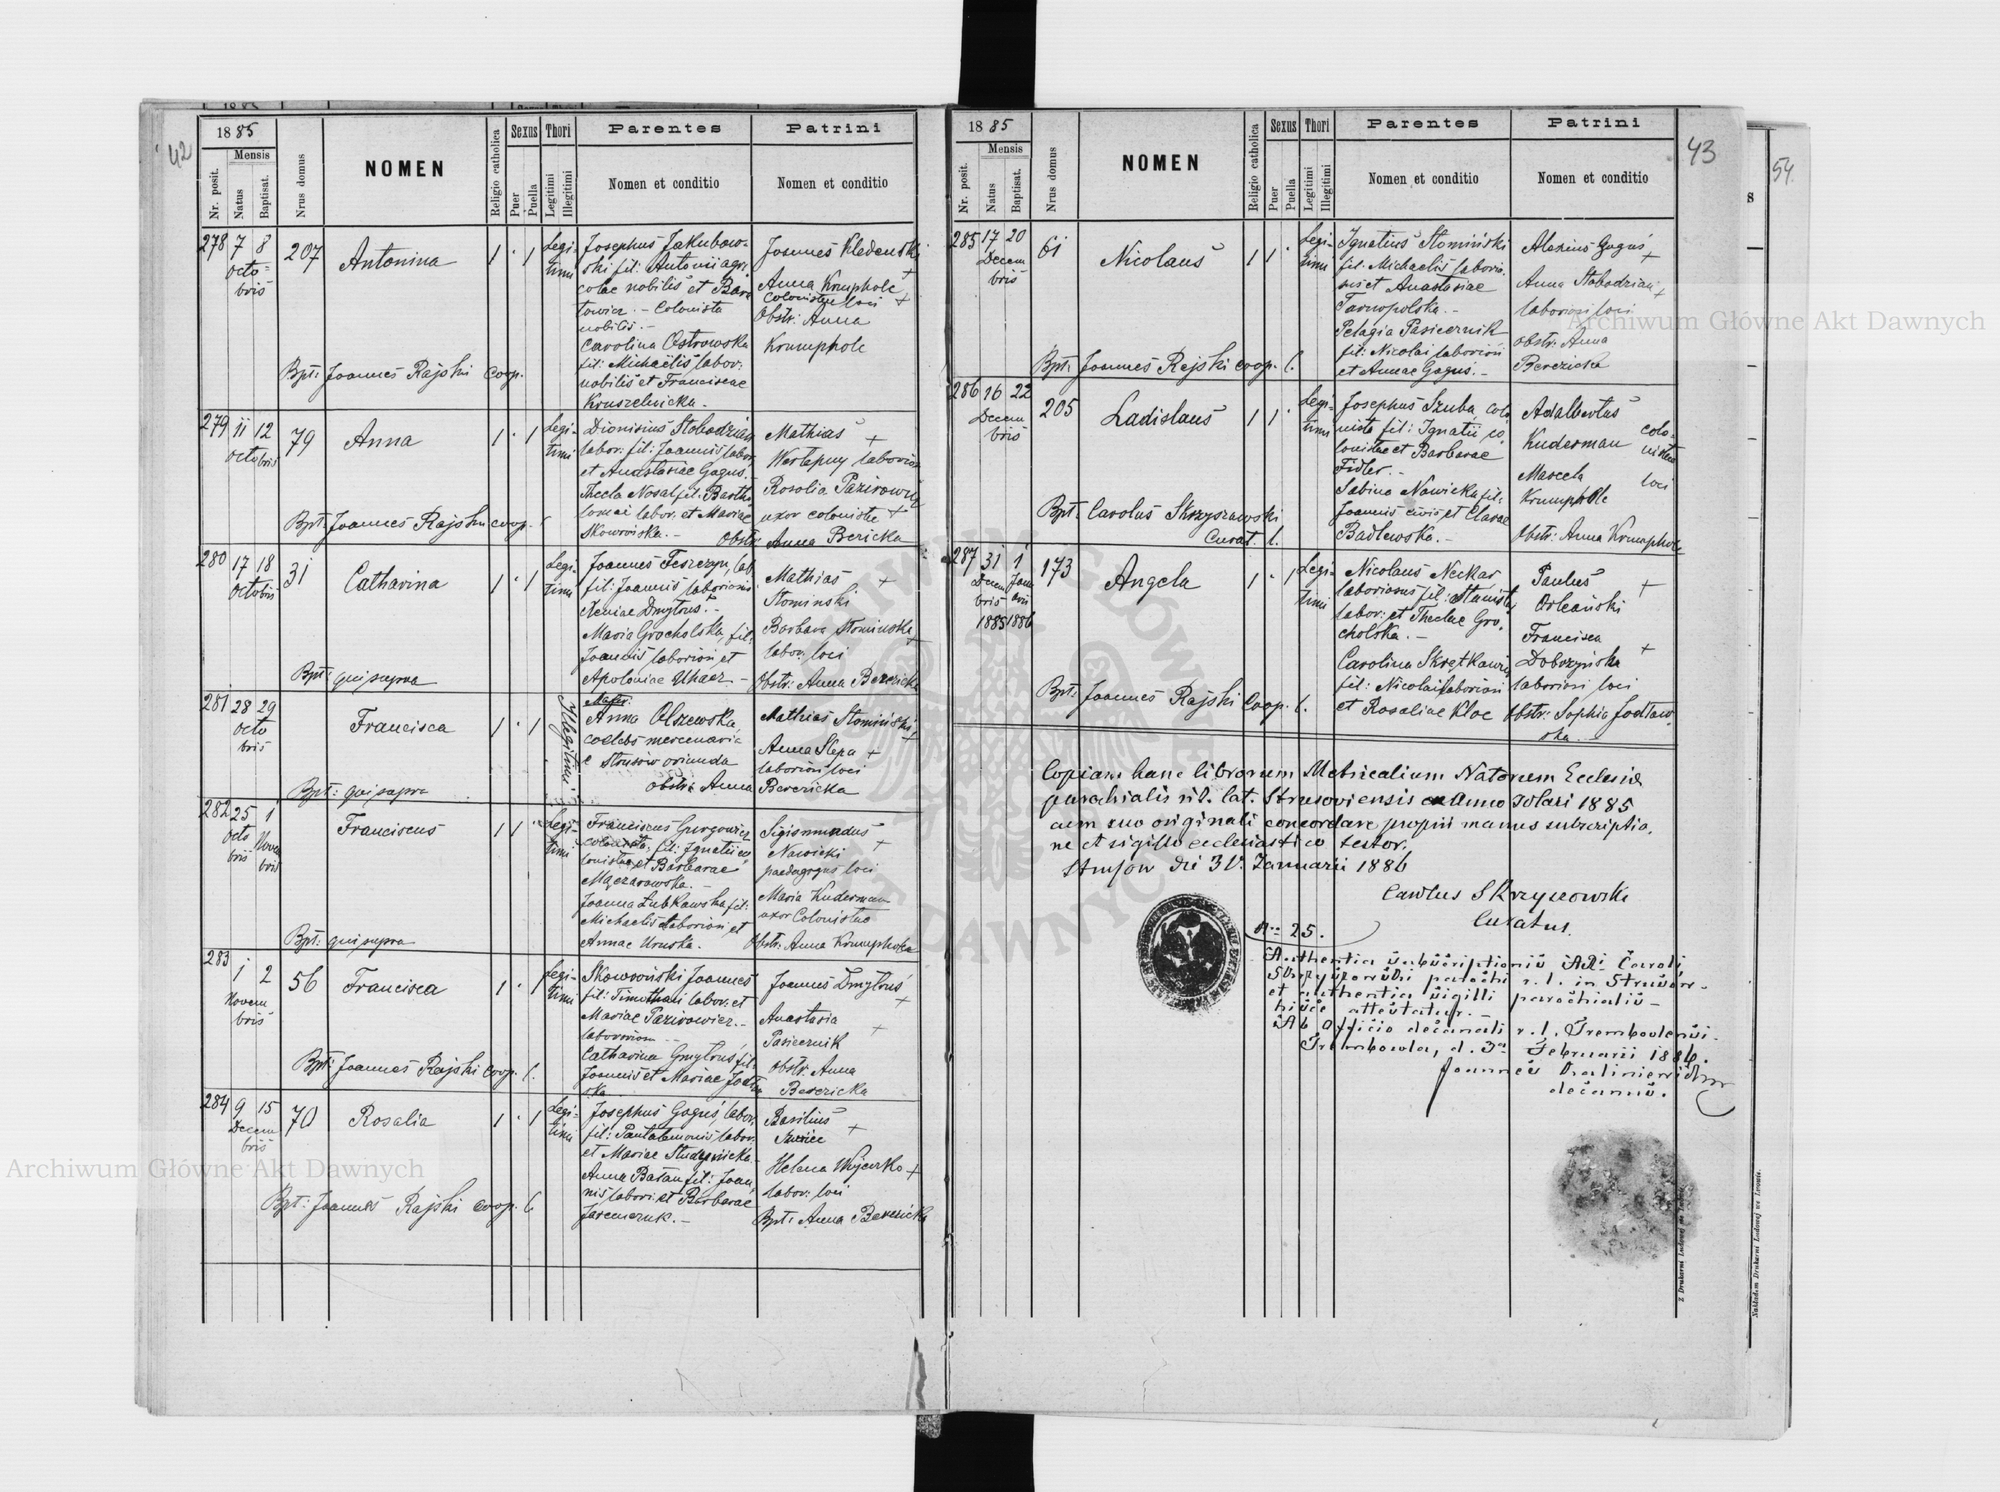 42
1885
Mensis
Nr. posit.
Natus
Baptisat.
Nrus domus
NOMEN
Religio catholica
Sexus
Puer
Puella
Thori
Legitimi
Illegitimi
Parentes
Nomen et conditio
Patrini
Nomen et conditio
278 7 8 Octobris 207 Antonina 1 · 1 Legitimi
Josephus Jakubow-
ski fil: Antonii agri-
colae nobilis et
colonista
nobilis.-
Carolina Ostrowska
fil: Michaëlis labor:
nobilis et Franciscae
Kruszelnicka.-
Joannes
Anna Krumpholc
coloniste loci
Obstr: Anna
Krumpholc
Bpt: Joannes Rajski coop.
279 11 12 Octobris 79 Anna 1 · 1 Legitimi
Dionisius Słobodzian
labor: fil: Joannis labor:
et Anastasiae Gagus.
Thecla Nosal fil: Bartho
lomai labor. et Mariae
Skowrońska.-
Mathias
Wertepny laborios
Rosolia Pazirowicz
uxor coloniste
Obstr: Anna Berezicka
Bpt: Joannes Rajski coop.
280 17 18 Octobris 31 Catharina 1 · 1 Legitimi
Joannes lab
fil: Joannis laboriosi
Xeniae Dmytrus.-
Maria Grocholska, fil:
Joannis laboriosi et
Apoloniae
Mathias
Słominski
Barbara Słominska
labor: loci
Obstr: Anna Berezicka
Bpt: qui supra
281 28 29 Octobris Francisca 1 · 1 Illegitimi
Mater:
Anna Olszewska
coelebs mercenaria
e Strusów oriunda
Mathias Słomiński
Anna Slepa
laboriosi loci
obstr: Anna Berezicka
Bpt: qui supra
282 25 1 Octobris Novembris Franciscus 1 1 · Legitimi
Franciscus Gurgowicz
colonista, fil: Ignatii co
lonistae et Barbarae
Mazarowska.-
Joanna Łubkawska fil:
Michaelis laboriosi et
Annae Uruska.
Sigismundus
Nawicki
paedagogus loci
Maria Kuderman
uxor Coloniste
Obstr: Anna Krumpholc
Bpt: qui supra
283 1 2 Novembris 56 Francisca 1 · 1 Legitimi
Skowroński Joannes
fil: Timothaei labor: et
Mariae Pazirowicz.-
Catharina Dmytrus, fil:
Joannis et Mariae
ska.
Joannes Dmytrus
Anastasia
Pasiecznik
Obstr: Anna
Berezicka
Bpt: Joannes Rajski coop. l.
284 9 15 Decembris 70 Rosalia 1 · 1 Legitimi
Josephus Gagus, labor:
fil: Pantalemonis labor:
et Mariae
Anna Baran fil: Joan
nis labori: et Barbarae
Jaremczuk.-
Basilius
Helena Wujcezko
labor: loci
Bpt: Anna Berezicka
Bpt: Joannes Rajski coop. l.
43
1885
Mensis
Nr. posit.
Natus
Baptisat.
Nrus domus
NOMEN
Religio catholica
Sexus
Puer
Puella
Thori
Legitimi
Illegitimi
Parentes
Nomen et conditio
Patrini
Nomen et conditio
285 17 20 Decembris 61 Nicolaus 1 1 · Legitimi
Ignatius Słomiński
fil: Michaelis laborio
sus et Anastasiae
Tarnopolska.-
Pelagia Pasiecznik
fil: Nicolai laboriosi
et Annae Gagus.-
Alexius Gagus
Anna Słobodzian
laboriosi loci
obstr: Anna
Berezicka
Bpt: Joannes Rajski coop. l.
286 16 22 Decembris 205 Ladislaus 1 1 · Legitimi
Josephus Szuba, colo
nista fil: Ignatii co
lonistae et Barbarae
Fidler.-
Sabina Nawicka fil:
Joannis civis et Clarae
Badlewska.-
Adalbertus
Kuderman colo-
nistae
Marcela loci
Krumpholc
Obstr: Anna Krumpholc
Bpt: Carolus Skrzyszowski
Curat. l.
287 31 1 Decembris Januarii 1885 1886 173 Angela 1 · 1 Legitimi
Nicolaus Neckar
laboriosus fil: Stanislai
labor: et Theclae Gro
cholska.-
Carolina Skrętkowicz
fil: Nicolai laboriosi
et Rosaliae Kloc
Paulus
Orleański
Francisca
Dobrzyńska
laboriosi loci
Obstr: Sophia Jodłow
ska.
Bpt: Joannes Rajski Coop. l.
Copiam hanc librorum Metricalium Natorum Ecclesiæ
parochialis rit. lat. Strusoviensis ex Anno Solari 1885
cum suo originali concordare proprii manus subscriptio,
ne et sigillo ecclesiastico testor,
Strusow die 31. Januarii 1886
Carolus Skrzyszowski
Curatus.
Nro 25.
Authentia subscriptionis ADi Caroli
Skrzyszowski parochi r. l. in Strusow-
et authentia sigilli parochialis-
hisce attestatur.-
Ab officio decanali r. l. Trembovlensi.
Trembowla, d. 3a Februarii 1886.
Joannes
decanus.
Z Drukarni Ludowej we Lwowie.
54.
8
Nakładem Drukarni Ludowej we Lwowie.
Archiwum Główne Akt Dawnych
Archiwum Główne Akt Dawnych
ARCHIWUM GŁÓWNE AKT DAWNYCH